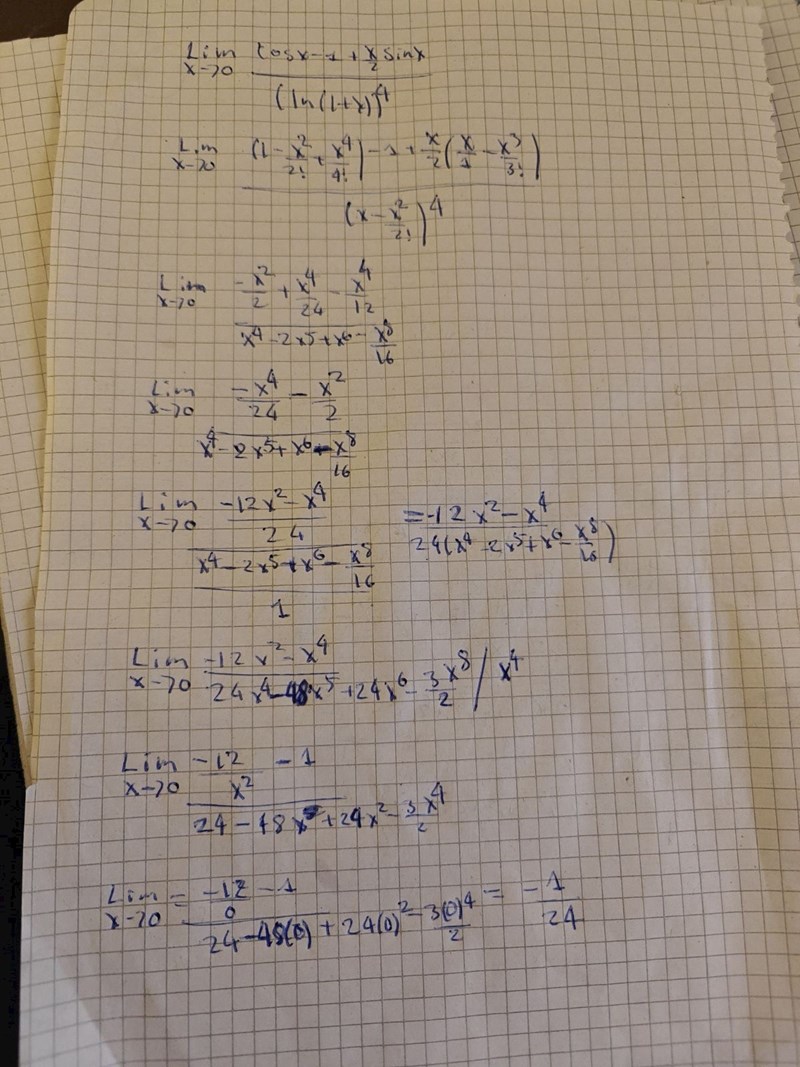 Lim x→0 (cosx - 1 + x/2 sinx) / (ln(1+x))^4
Lim x→0 ((1 - x^2/2! + x^4/4!) - 1 + x/2 (x/1 - x^3/3!)) / (x - x^2/2!)^4
Lim x→0 (-x^2/2 + x^4/24 - x^4/12) / (x^4 - 2x^5 + x^6 - x^8/16)
Lim x→0 (-x^4/24 - x^2/2) / (x^4 - 2x^5 + x^6 - x^8/16)
Lim x→0 ((-12x^2 - x^4)/24) / ((x^4 - 2x^5 + x^6 - x^8/16)/1) = (-12x^2 - x^4) / (24(x^4 - 2x^5 + x^6 - x^8/16))
Lim x→0 (-12x^2 - x^4) / (24x^4 - 48x^5 + 24x^6 - 3x^8/2) / x^4
Lim x→0 (-12/x^2 - 1) / (24 - 48x + 24x^2 - 3x^4/2)
Lim x→0 = (-12/0 - 1) / (24 - 48(0) + 24(0)^2 - 3(0)^4/2) = -1/24